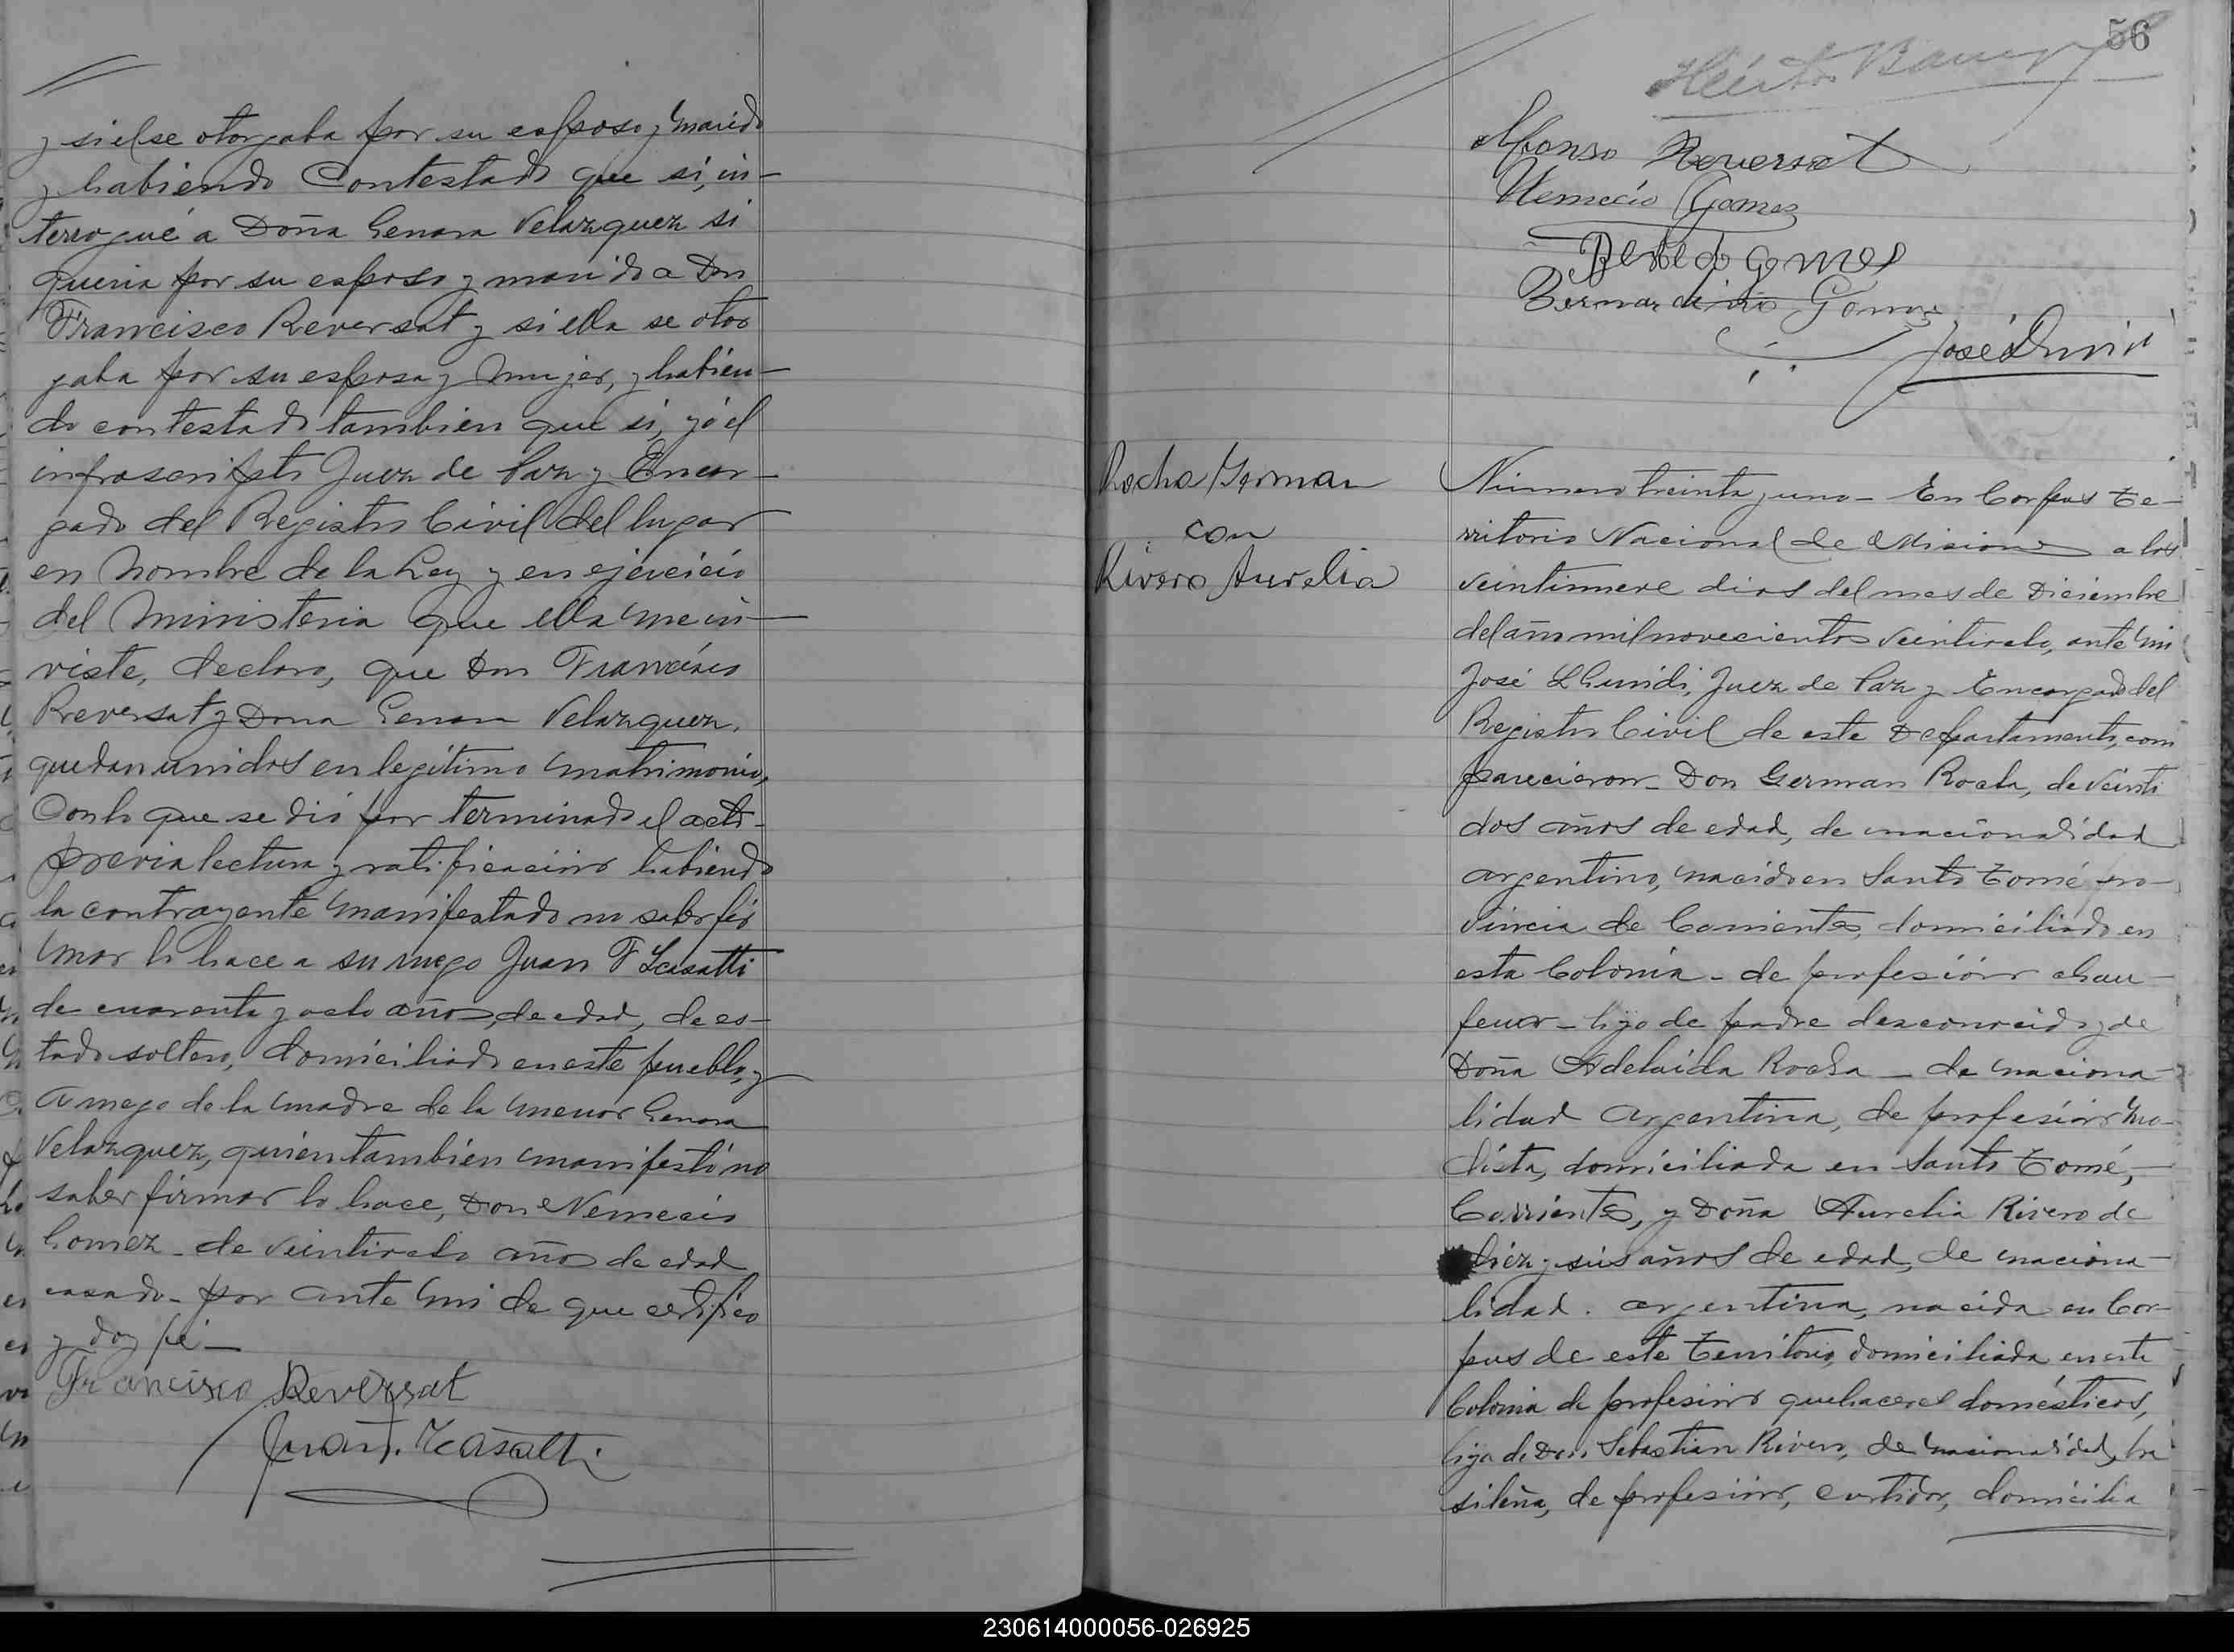 y si el se otorgaba por su esposo y marido
y habiendo Contestado que si, in-
terrogué a Doña Genara Velazquez si
queria por su esposo y marido a Don
Francisco Reversat y si ella se otor
gaba por su esposa y mujer, y habien-
do contestado tambien que si, yó el
infrascripto Juez de Paz y Encar-
gado del Registro Civil del lugar
en nombre de la Ley y en ejercicio
del Ministerio que ella me in-
viste, declaro, que Don Francisco
Reversat y Dona Genara Velazquez,
quedan unidos en legítimo matrimonio,
Con lo que se dió por terminado el acto-
previa lectura y ratificación habiendo
la contrayente manifestado no saber fir
mar lo hace a su ruego Juan F
de cuarenta y ocho años, de edad, de es-
tado soltero, domiciliado en este pueblo, y
a ruego de la madre de la menor Genara
Velazquez, quien también manifestó no
saber firmar lo hace, Don Nemecio
Gomez - de veintiocho años de edad
casado - por ante mi de que certifico
y doy fé -
Francisco Reversat
Juan F.
56
Héctor
Alfonso Reversat
Nemecio Gomez
Gomes
Bernardino Gomez
José
Rocha German
con
Rivero Aurelia
Número treinta y uno - En Corpus Te-
rritorio Nacional de Misiones a los
veintinueve dias del mes de Diciembre
del año mil novecientos veintiocho, ante mi
José Juez de Paz y Encargado del
Registro Civil de este Departamento, com
parecieron - Don German Rocha, de veinti
dos años de edad, de nacionalidad
argentino, nacido en Santo Tomé pro-
vincia de Corrientes, domiciliado en
esta Colonia - de profesión chau-
feur - hijo de padre desconocido y de
Doña Adelaida Rocha - de naciona-
lidad argentina, de profesión mo-
dista, domiciliada en Santo Tomé,-
Corrientes, y Doña Aurelia Rivero de
diez y seis años de edad, de naciona-
lidad . argentina, nacida en Cor-
pus de este Territorio, domiciliada en esta
Colonia de profesión quehaceres domésticos,
hija de Don Sebastian Rivero, de nacionalidad, bra
sileña, de profesión, curtidor, domicilia
230614000056-026925